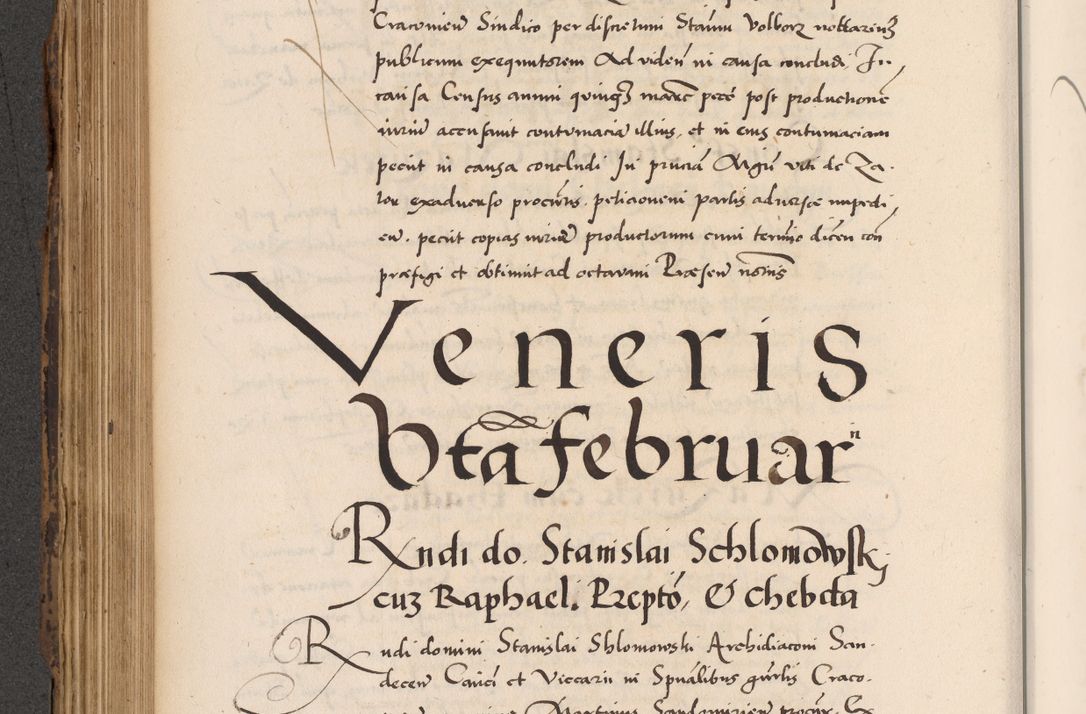 Cracovien Sindico per discretum Stanm Volborz nottarium
publicum exequutorem Ad viden in causa concludi In
causa Census annui quinq marc pecc post productione
iuriu accusavit contumacia illius, et in eius contumaciam
peciit in causa concludi In pncia Mgri viti de Za-
tor exadverso procuris, peticionem partis adverse impedi
en. peciit copias iuriu productorum cum termio dicen con
praefigi et obtinuit ad octavam Praesen nomis
Veneris
Vta februarn
Rndi do. Stanislai Schlomowsky
cuz Raphael. Przepto, & Chebda
Rndi domini Stanislai Shlomowski Archidiaconi San-
decen Canci et Viccarii in Spualibus gnrlis Craco-
Martinus Sandomirien procur. Ex